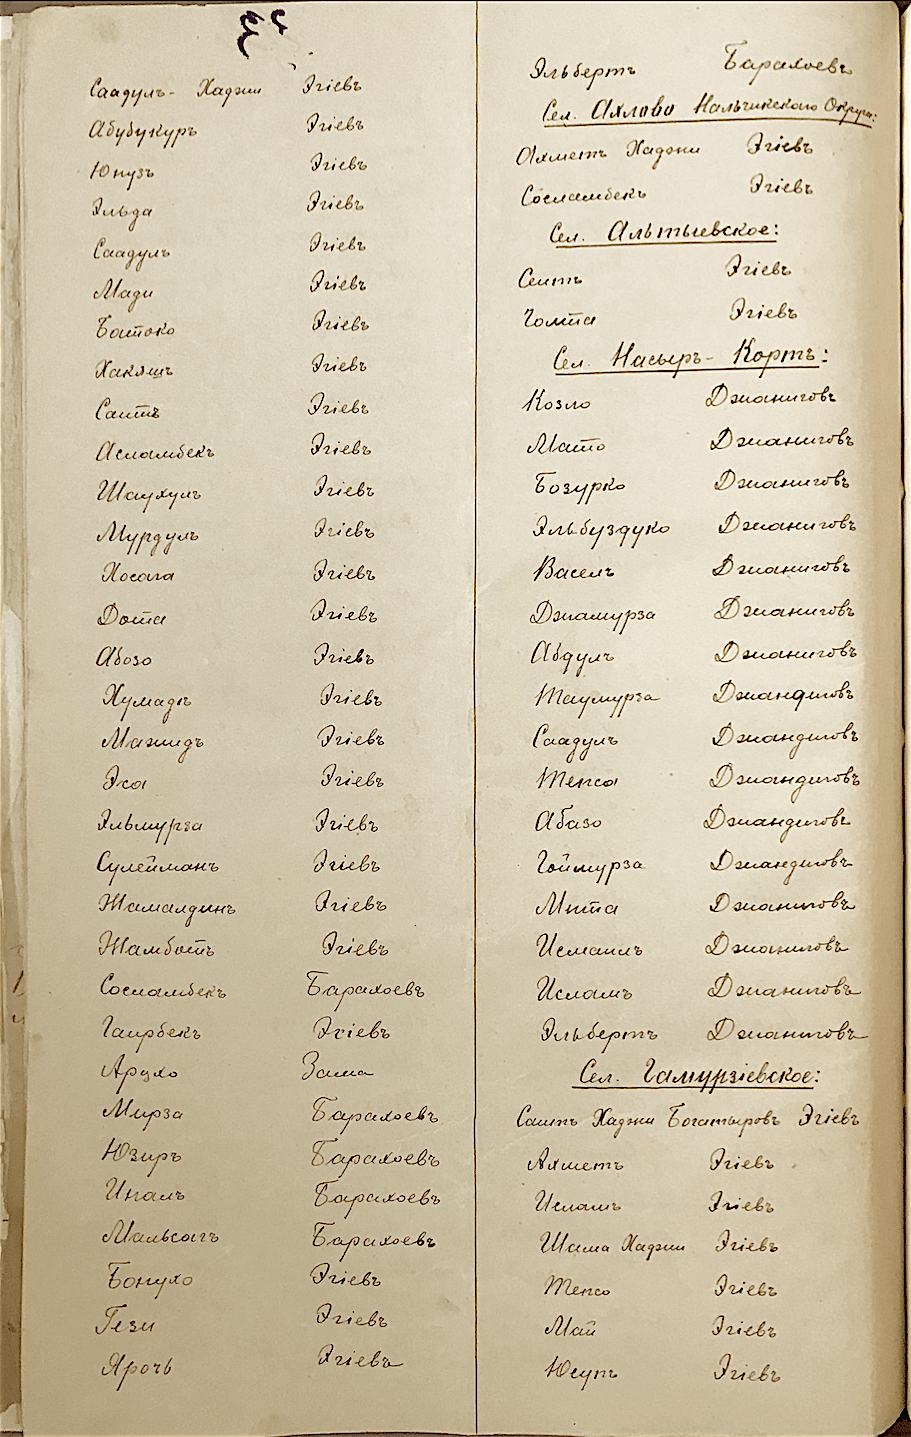 Саадулъ-Хаджи Эгіевъ
Абубукуръ Эгіевъ
Юнузъ Эгіевъ
Эльда Эгіевъ
Саадулъ Эгіевъ
Мади Эгіевъ
Батоко Эгіевъ
Хакяшъ Эгіевъ
Саитъ Эгіевъ
Асламбекъ Эгіевъ
Шаухулъ Эгіевъ
Мурдулъ Эгіевъ
Хосага Эгіевъ
Дота Эгіевъ
Абозо Эгіевъ
Хумадъ Эгіевъ
Мажидъ Эгіевъ
Эса Эгіевъ
Эльмурза Эгіевъ
Сулейманъ Эгіевъ
Жамалдинъ Эгіевъ
Жамботъ Эгіевъ
Сосламбекъ Барахоевъ
Гаирбекъ Эгіевъ
Арцхо Зама
Мирза Барахоевъ
Юзиръ Барахоевъ
Иналъ Барахоевъ
Мальсагъ Барахоевъ
Бонухо Эгіевъ
Гези Эгіевъ
Ярочь Эгіевъ
Эльбертъ Барахоевъ
Сел. Ахлово Нальчикскаго Округа:
Ахметъ Хаджи Эгіевъ
Сосламбекъ Эгіевъ
Сел. Альтыевское:
Сеитъ Эгіевъ
Чомта Эгіевъ
Сел. Насыръ-Кортъ:
Козло Джаниговъ
Мато Джаниговъ
Бозурко Джаниговъ
Эльбуздуко Джаниговъ
Васелъ Джаниговъ
Джамурза Джаниговъ
Абдулъ Джаниговъ
Таумурза Джандиговъ
Саадулъ Джандиговъ
Тепса Джандиговъ
Абазо Джандиговъ
Гоймурза Джандиговъ
Мита Джаниговъ
Исмаилъ Джаниговъ
Исламъ Джаниговъ
Эльбертъ Джаниговъ
Сел. Гамурзіевское:
Саитъ Хаджи Богатыровъ Эгіевъ
Ахметъ Эгіевъ
Исламъ Эгіевъ
Шама Хаджи Эгіевъ
Тепсо Эгіевъ
Май Эгіевъ
Юсупъ Эгіевъ